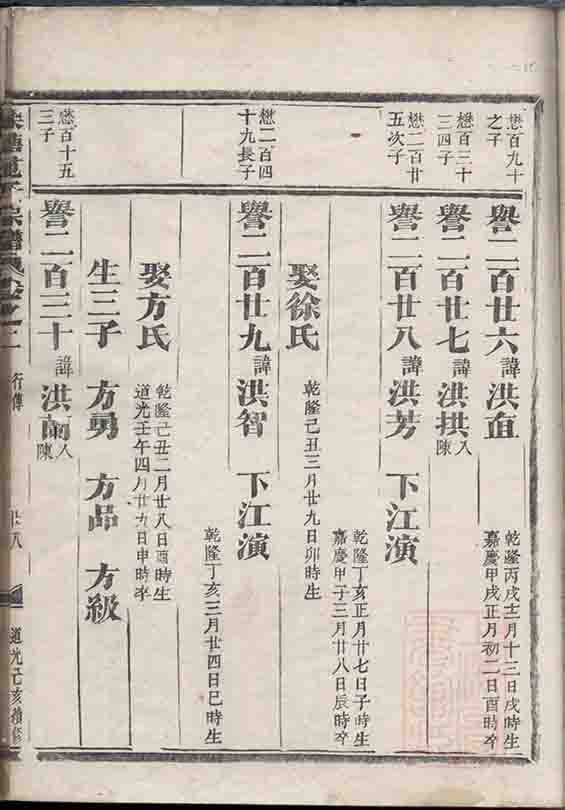 懋百九十
之子
譽二百廿六 諱 洪直
乾隆丙戌十二月十三日戌時生
嘉慶甲戌正月初二日酉時卒
懋百三十
三四子
譽二百廿七 諱 洪拱 入陳
懋二百廿
五次子
譽二百廿八 諱 洪芳 下江演
乾隆丁亥正月廿七日子時生
嘉慶甲子三月廿八日辰時卒
娶徐氏
乾隆己丑三月廿九日卯時生
懋二百四
十九長子
譽二百廿九 諱 洪智 下江演
乾隆丁亥三月廿四日巳時生
娶方氏
乾隆己丑二月廿八日酉時生
道光壬午四月廿九日申時卒
生三子 方勇 方品 方級
懋百十五
三子
譽二百三十 諱 洪 入陳
宗譜 卷之 行傳 廿八 道光己亥續修